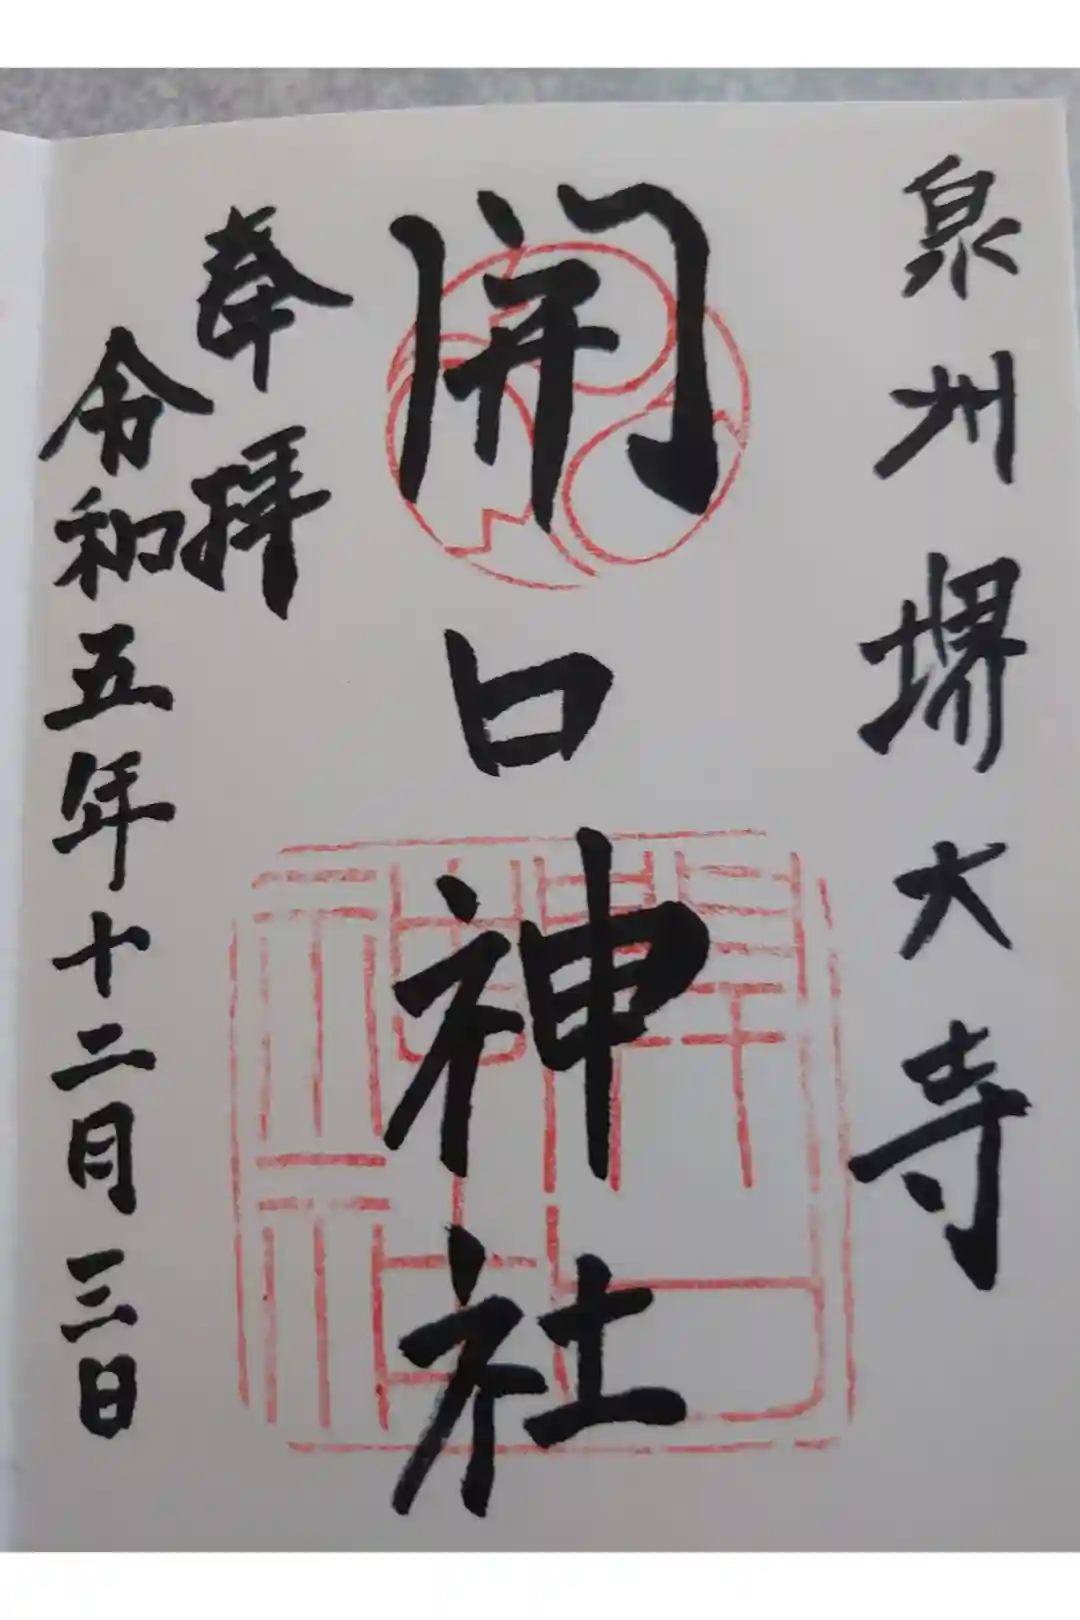 泉州堺大寺
開口神社
奉拝
令和五年十二月三日
開口神社